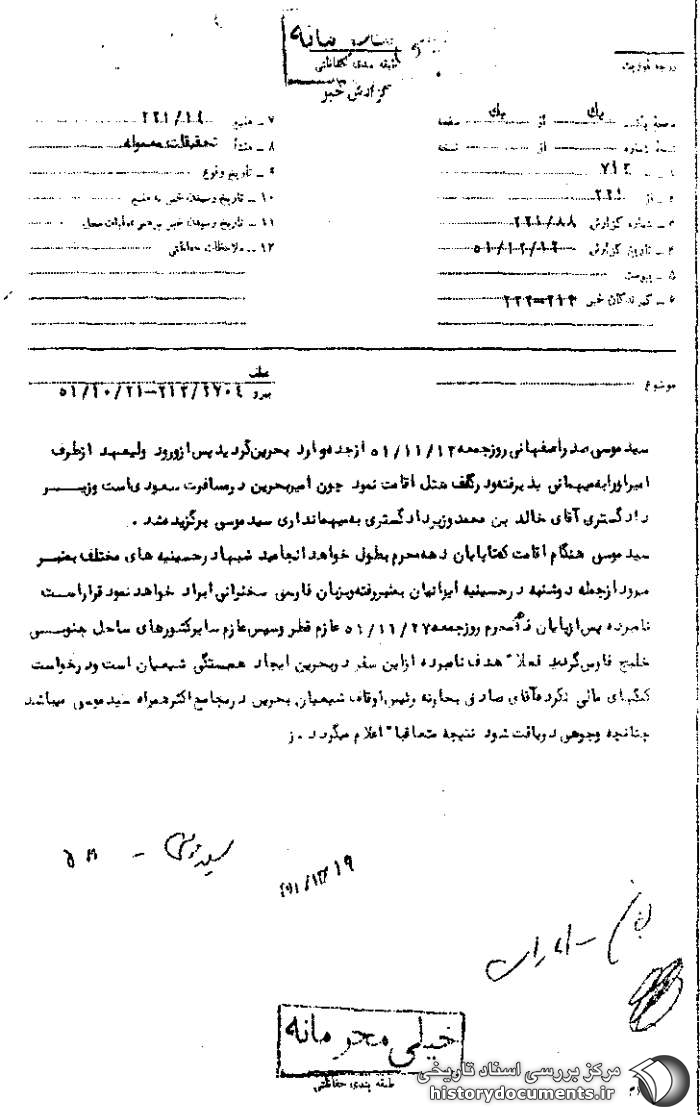 خیلی محرمانه
طبقه بندی حفاظتی
گزارش خبر
درجه فوریت
نسخه شماره از نسخه
یك از یك صفحه
۱ - ۷۱۲
۲ - از ۲۲۱
۳ - شماره گزارش ۲۲۱/۸۸
۴ - تاریخ گزارش ۵۱/۱۲/۱۲
۵ - پیوست
۶ - گیرندگان خبر
۷ - منبع ۲۲۱/۱۴
۸ - منشأ تحقیقات معموله
۹ - تاریخ وقوع
۱۰ - تاریخ رسیدن خبر به منبع
۱۱ - تاریخ رسیدن خبر برهبر عملیات محل
۱۲ - ملاحظات حفاظتی
موضوع
عطف
پیرو ۲۱۲/۱۷۰۴-۵۱/۱۰/۲۱
سید موسی صدر اصفهانی روز جمعه ۵۱/۱۱/۱۲ از جده وارد بحرین گردید پس از ورود ولیعهد از طرف
امیر اورا به میهمانی پذیرفته و در گلف هتل اقامت نمود چون امیر بحرین در مسافرت سعودی است وزیر
دادگستری آقای خالد بن محمد وزیر دادگستری به میهمانداری سید موسی برگزیده شد .
سید موسی هنگام اقامت که تا پایان دهه محرم بطول خواهد انجامید شبها در حسینیه های مختلف بمنبر
میرود از جمله دوشنبه در حسینیه ایرانیان بمنبر رفته و بزبان فارسی سخنرانی ایراد خواهد نمود قرار است
نامبرده پس از پایان دهه محرم روز جمعه ۵۱/۱۱/۲۷ عازم قطر و سپس عازم سایر کشورهای ساحل جنوبی
خلیج فارس گردد فعلا" هدف نامبرده از این سفر در بحرین ایجاد همبستگی شیعیان است و درخواست
کمکهای مالی نکرده آقای صادق بحارنه رئیس اوقاف شیعیان بحرین در مجامع اکثر همراه سید موسی میباشد
چنانچه وجوهی دریافت شود نتیجه متعاقبا" اعلام میگردد . ز
سید موسی -
۵۱/۱۲/۱۹
خیلی محرمانه
طبقه بندی حفاظتی
مرکز بررسی اسناد تاریخی
historydocuments.ir